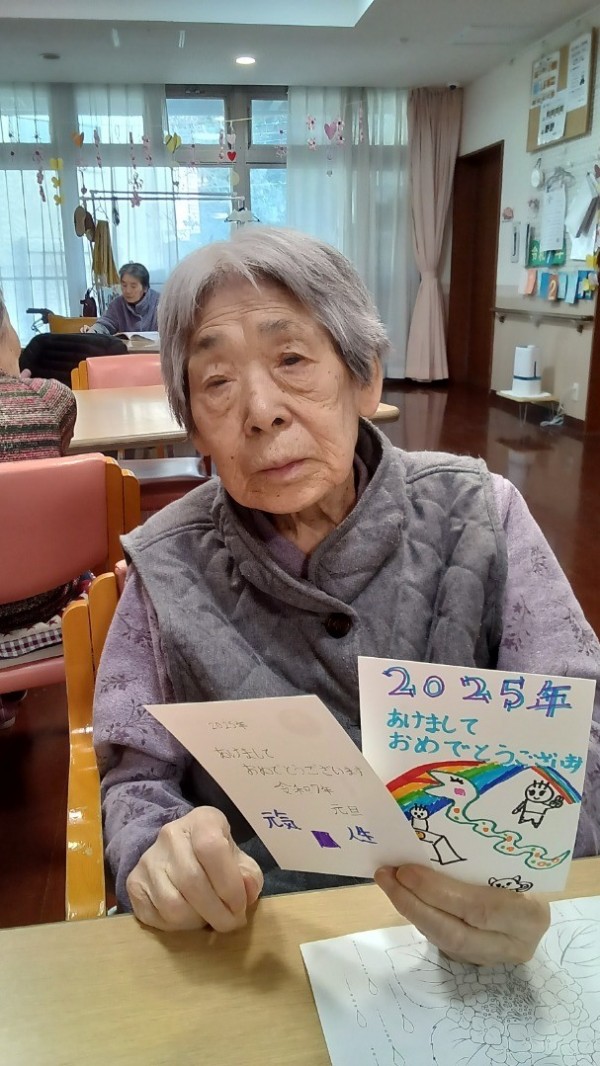 2025年
あけまして
おめでとうございます
令和7年
元旦
元気
人生
2025年
あけまして
おめでとうございま